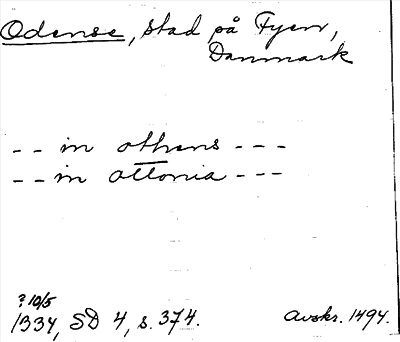 Odense, stad på Fyen,
Danmark
-- in othens ---
-- in ottonia ---
? 10/5
1334, SD 4, s. 374.
Avskr. 1494.